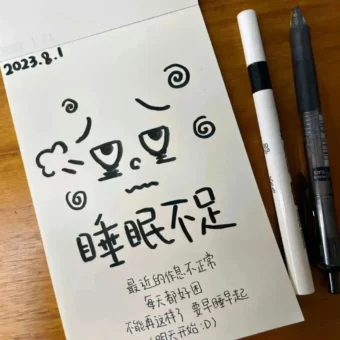 2023.8.1
睡眠不足
最近的作息不正常
每天都好困
不能再这样了 要早睡早起
(明天开始:D)